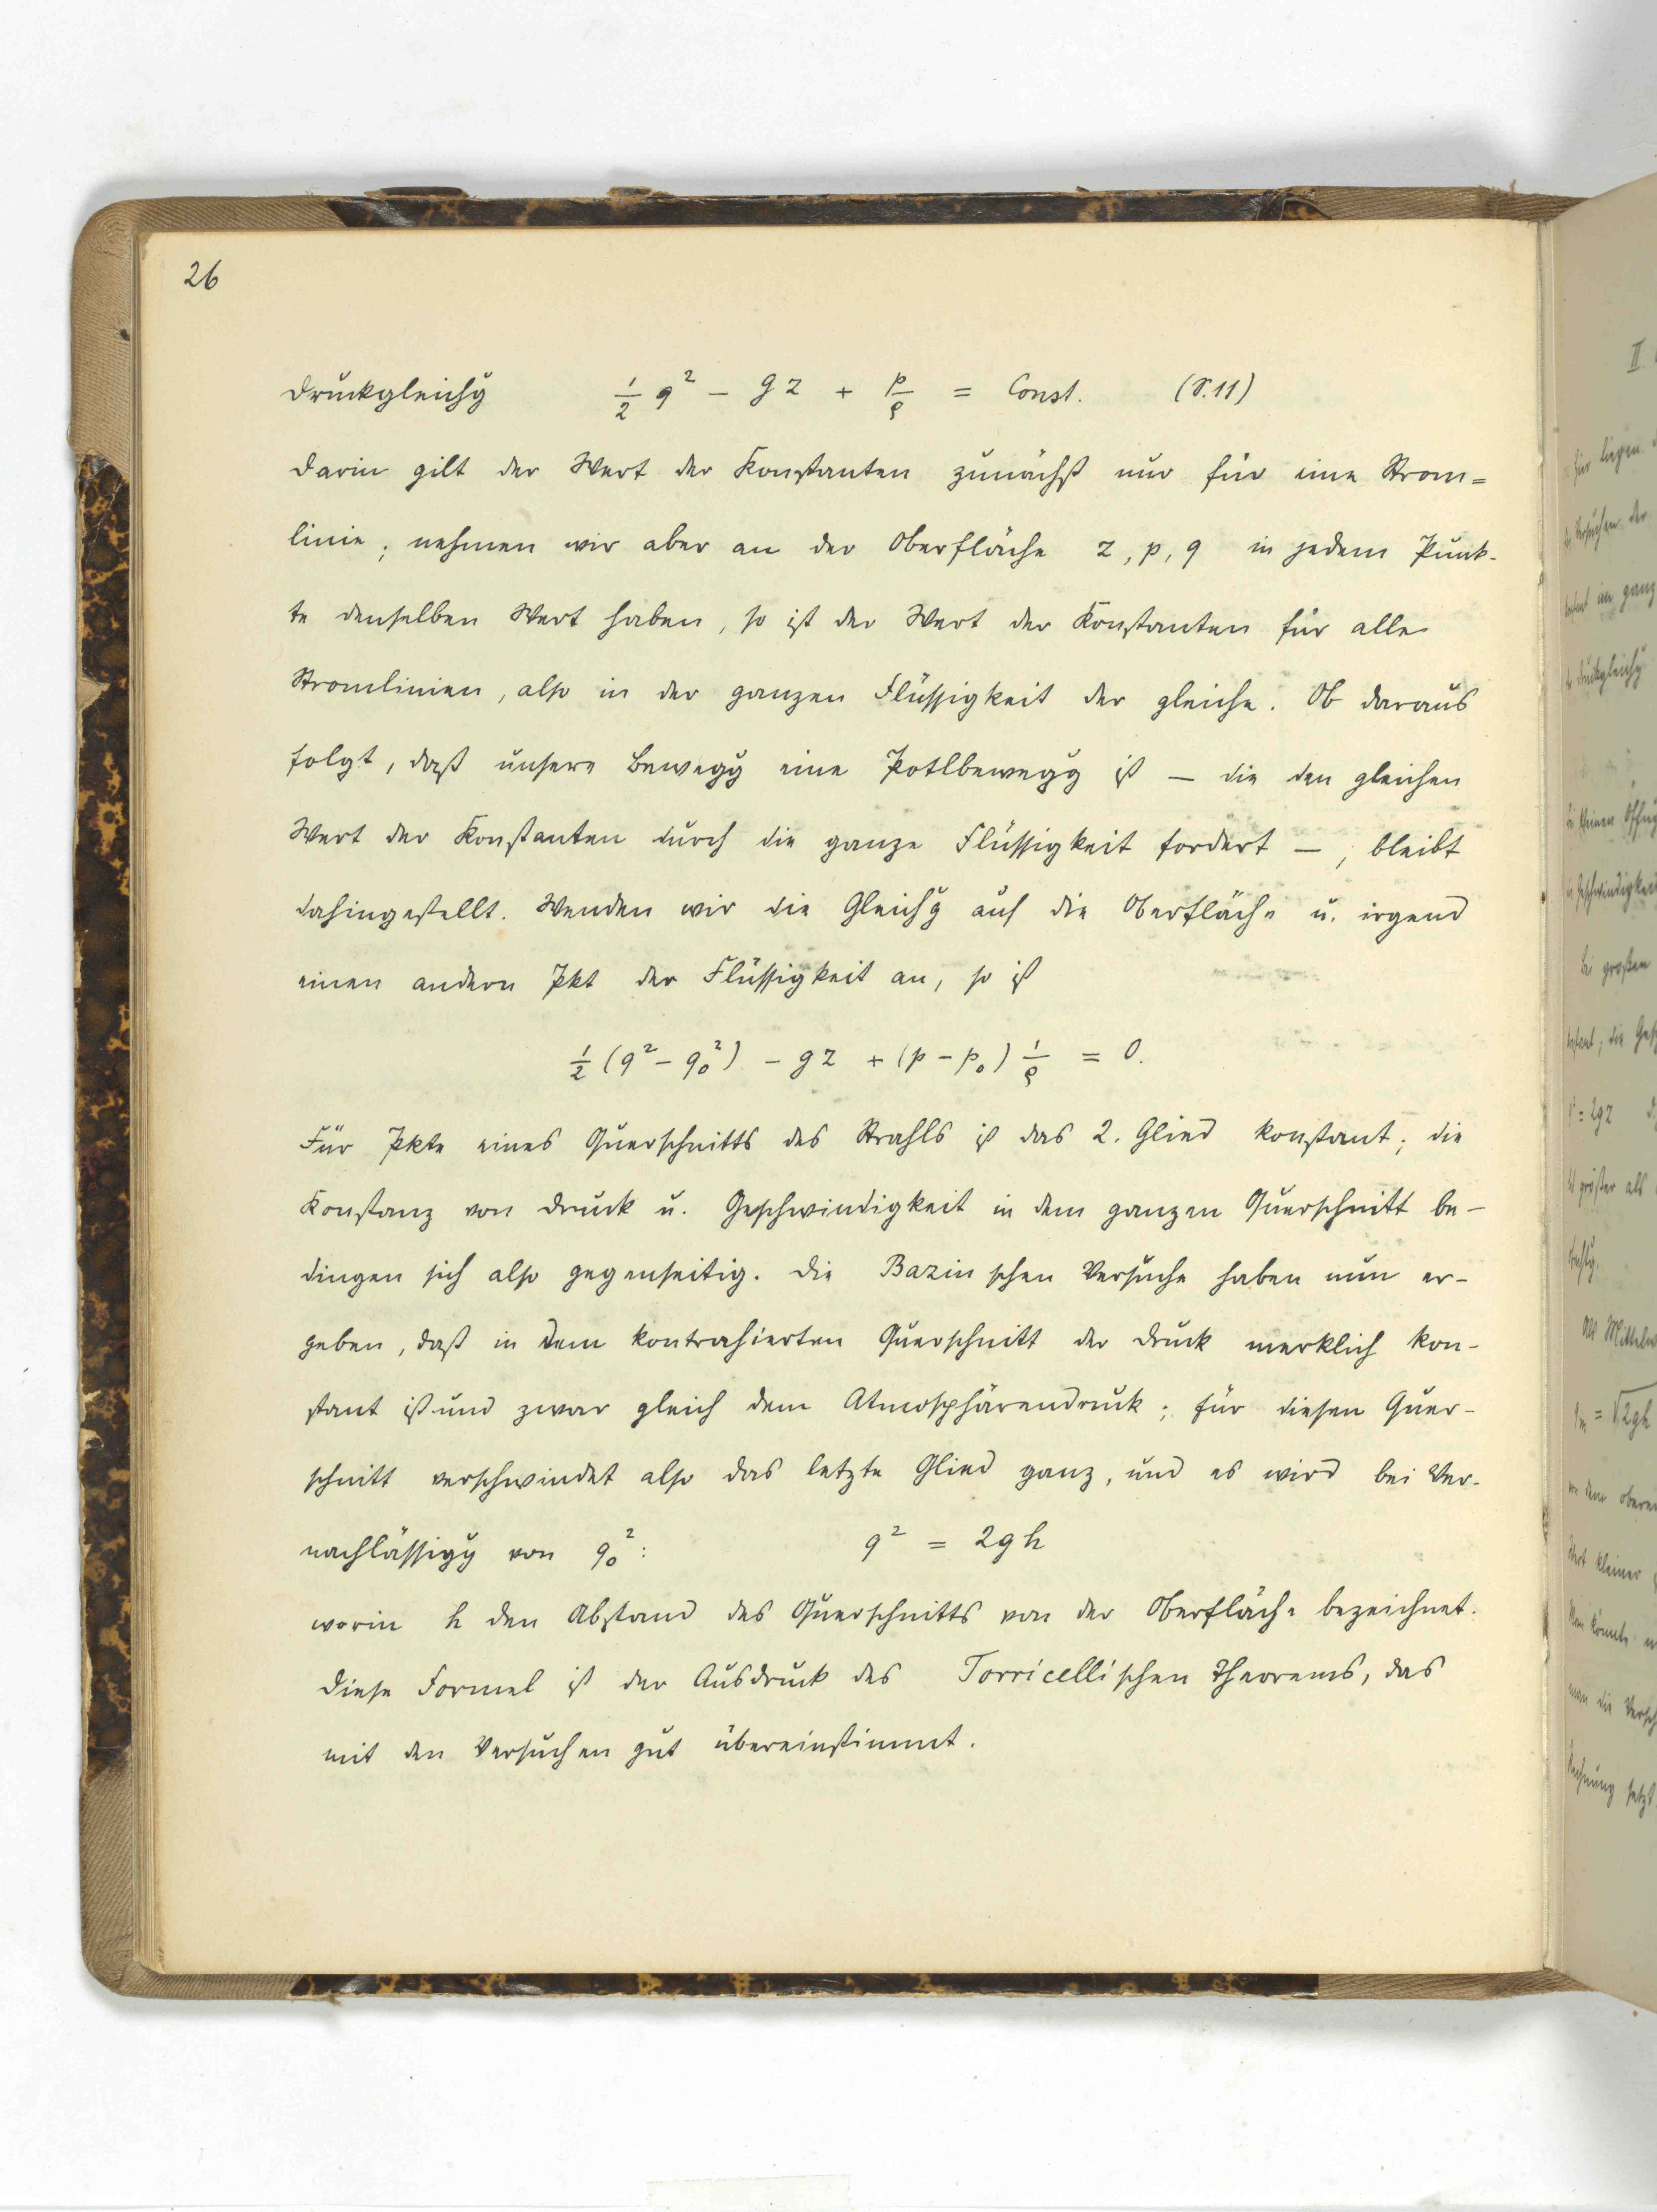 26
Druckgleichg ½ q² − gz + p/ρ = Const. (S. 11)
Darin gilt der Wert der Konstanten zunächst nur für eine Strom=
linie; nehmen wir aber an der Oberfläche z, p, q in jedem Punk-
te denselben Wert haben, so ist der Wert der Konstanten für alle
Stromlinien, also in der ganzen Flüssigkeit der gleiche. Ob daraus
folgt, daß unsere Bewegg eine Potlbewegg ist — die den gleichen
Wert der Konstanten durch die ganze Flüssigkeit fordert —, bleibt
dahingestellt. Wenden wir die Gleichg auf die Oberfläche u. irgend
einen andern Pkt der Flüssigkeit an, so ist
½ (q² − q₀²) − gz + (p − p₀) 1/ρ = 0.
Für Pkte eines Querschnitts des Strahls ist das 2. Glied konstant; die
Konstanz von Druck u. Geschwindigkeit in dem ganzen Querschnitt be-
dingen sich also gegenseitig. Die Bazinschen Versuche haben nun er-
geben, daß in dem kontrahierten Querschnitt der Druck merklich kon-
stant ist und zwar gleich dem Atmosphärendruck; für diesen Quer-
schnitt verschwindet also das letzte Glied ganz, und es wird bei Ver-
nachlässigg von q₀²: q² = 2gh
worin h den Abstand des Querschnitts von der Oberfläche bezeichnet.
Diese Formel ist der Ausdruck des Torricellischen Theorems, das
mit den Versuchen gut übereinstimmt.